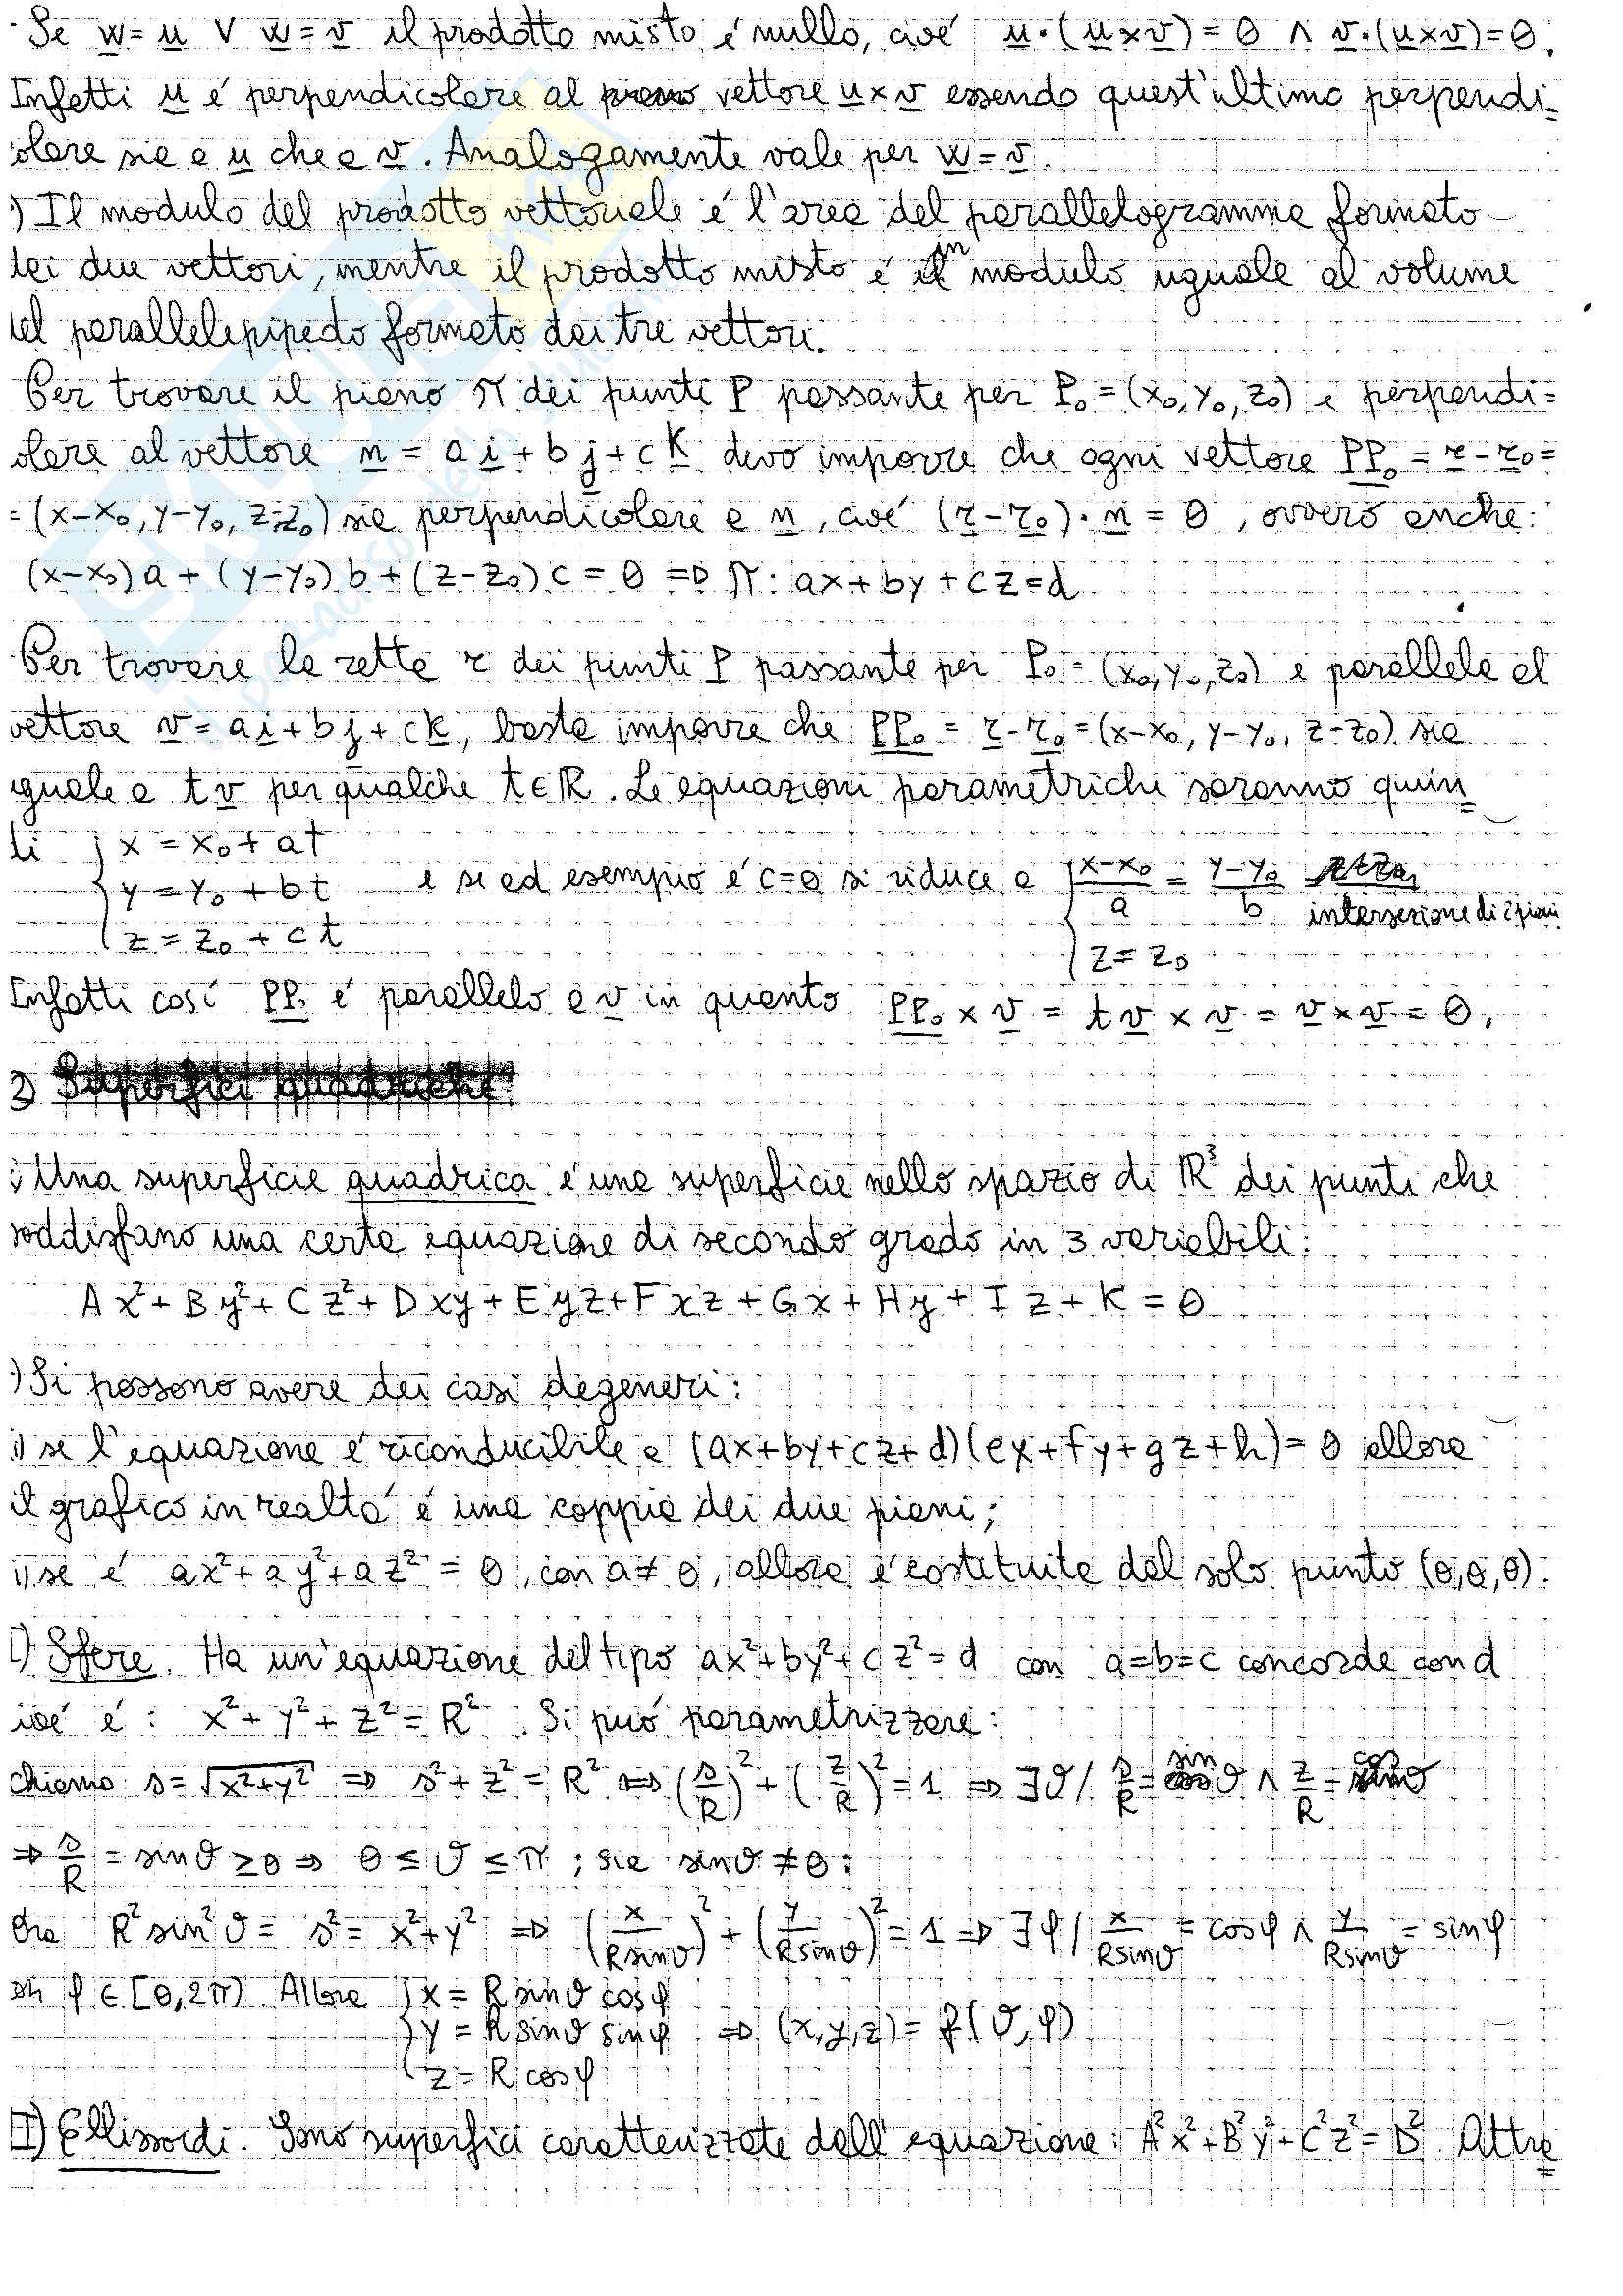 · Se w = u ∨ w = v il prodotto misto é nullo, cioé u·(u×v) = 0 ∧ v·(u×v) = 0.
Infatti u é perpendicolare al vettore u×v essendo quest'ultimo perpendi=
olare sia a u che a v. Analogamente vale per w = v.
·) Il modulo del prodotto vettoriale é l'area del parallelogramma formato
dai due vettori, mentre il prodotto misto é in modulo uguale al volume
del parallelepipedo formato dai tre vettori.
Per trovare il piano π dei punti P passante per P₀ = (x₀, y₀, z₀) e perpendi=
olare al vettore n = a i + b j + c k devo imporre che ogni vettore PP₀ = r - r₀ =
= (x-x₀, y-y₀, z-z₀) sia perpendicolare a n, cioé (r - r₀)·n = 0, ovvero anche:
(x-x₀)a + (y-y₀)b + (z-z₀)c = 0 ⇒ π: ax + by + cz = d
Per trovare la retta r dei punti P passante per P₀ = (x₀, y₀, z₀) e parallela al
vettore v = ai + bj + ck, basta imporre che PP₀ = r - r₀ = (x-x₀, y-y₀, z-z₀) sia
uguale a tv per qualche t ∈ ℝ. Le equazioni parametriche saranno quin=
di { x = x₀ + at
y = y₀ + bt e se ad esempio é c=0 si riduce a { (x-x₀)/a = (y-y₀)/b intersezione di 2 piani
z = z₀ + ct z = z₀
Infatti cosí PP₀ é parallelo a v in quanto PP₀ × v = tv × v = v × v = 0.
2) Superfici quadriche
:) Una superficie quadrica é una superficie nello spazio di ℝ³ dei punti che
soddisfano una certa equazione di secondo grado in 3 variabili:
Ax² + By² + Cz² + Dxy + Eyz + Fxz + Gx + Hy + Iz + K = 0
·) Si possono avere dei casi degeneri:
i) se l'equazione é riconducibile a (ax+by+cz+d)(ex+fy+gz+h) = 0 allora
il grafico in realtá é una coppia dei due piani;
ii) se é ax² + ay² + az² = 0, con a ≠ 0, allora é costituita dal solo punto (0,0,0).
I) Sfere. Ha un'equazione del tipo ax² + by² + cz² = d con a=b=c concorde con d
ioé é: x² + y² + z² = R². Si puó parametrizzare:
chiamo s = √(x²+y²) ⇒ s² + z² = R² ⇔ (s/R)² + (z/R)² = 1 ⇒ ∃ϑ / s/R = sinϑ ∧ z/R = cosϑ
⇒ s/R = sinϑ ≥ 0 ⇒ 0 ≤ ϑ ≤ π; sia sinϑ ≠ 0:
Ora R² sin²ϑ = s² = x² + y² ⇒ (x/(R sinϑ))² + (y/(R sinϑ))² = 1 ⇒ ∃φ / x/(R sinϑ) = cosφ ∧ y/(R sinϑ) = sinφ
on φ ∈ [0, 2π). Allora { x = R sinϑ cosφ
y = R sinϑ sinφ ⇒ (x,y,z) = f(ϑ,φ)
z = R cosφ
I) Ellissoidi. Sono superfici caratterizzate dall'equazione: A²x² + B²y² + C²z² = D². Attra=